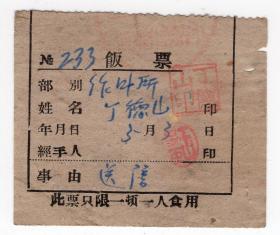 № 233 飯票
部别 徐州所
姓名 丁德山 印
年月日 3月3日
經手人 印
事由 送信
此票只限一頓一人食用